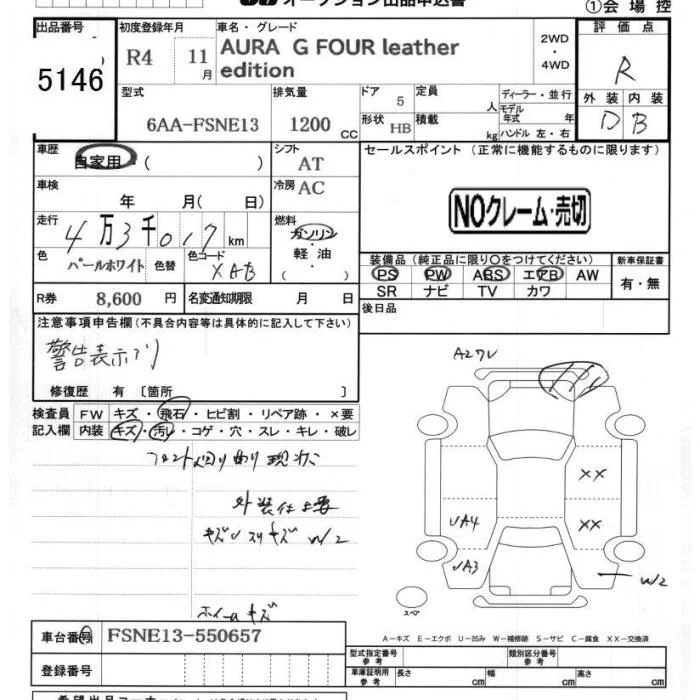 オークション出品申込書
①会場控
出品番号
5146
初度登録年月
R4 11月
車名・グレード
AURA G FOUR leather
edition
2WD
・
4WD
評価点
R
外装 内装
D B
型式
6AA-FSNE13
排気量
1200 CC
ドア 5
形状 HB
定員 人
積載 kg
ディーラー・並行
モデル年式 年
ハンドル 左・右
車歴
自家用・( )
シフト
AT
車検
年 月( 日)
冷房 AC
走行
4万3千017km
燃料
ガソリン
・
軽油
( )
色
パールホワイト
色替
色コード
XAB
R券 8,600 円
名変通知期限 月 日
セールスポイント (正常に機能するものに限ります)
NOクレーム・売切
装備品(純正品に限り○をつけてください)
PS PW ABS エアB AW
SR ナビ TV カワ
新車保証書
有・無
後日品
注意事項申告欄(不具合内容等は具体的に記入して下さい)
警告表示アリ
修復歴 有 〔箇所 〕
検査員
記入欄
FW キズ・飛石・ヒビ割・リペア跡・×要
内装 キズ・汚れ・コゲ・穴・スレ・キレ・破レ
フロント回り曲り現状
外装仕上要
キズ W2
ホイールキズ
A27U
XX
XX
UA4
UA3
W2
スペア
A－キズ E－エクボ U－凹み W－補修跡 S－サビ C－腐食 XX－交換済
車台番号 FSNE13-550657
登録番号
型式指定番号
参考
類別区分番号
参考
車庫証明用
参考
長さ cm
幅 cm
高さ cm